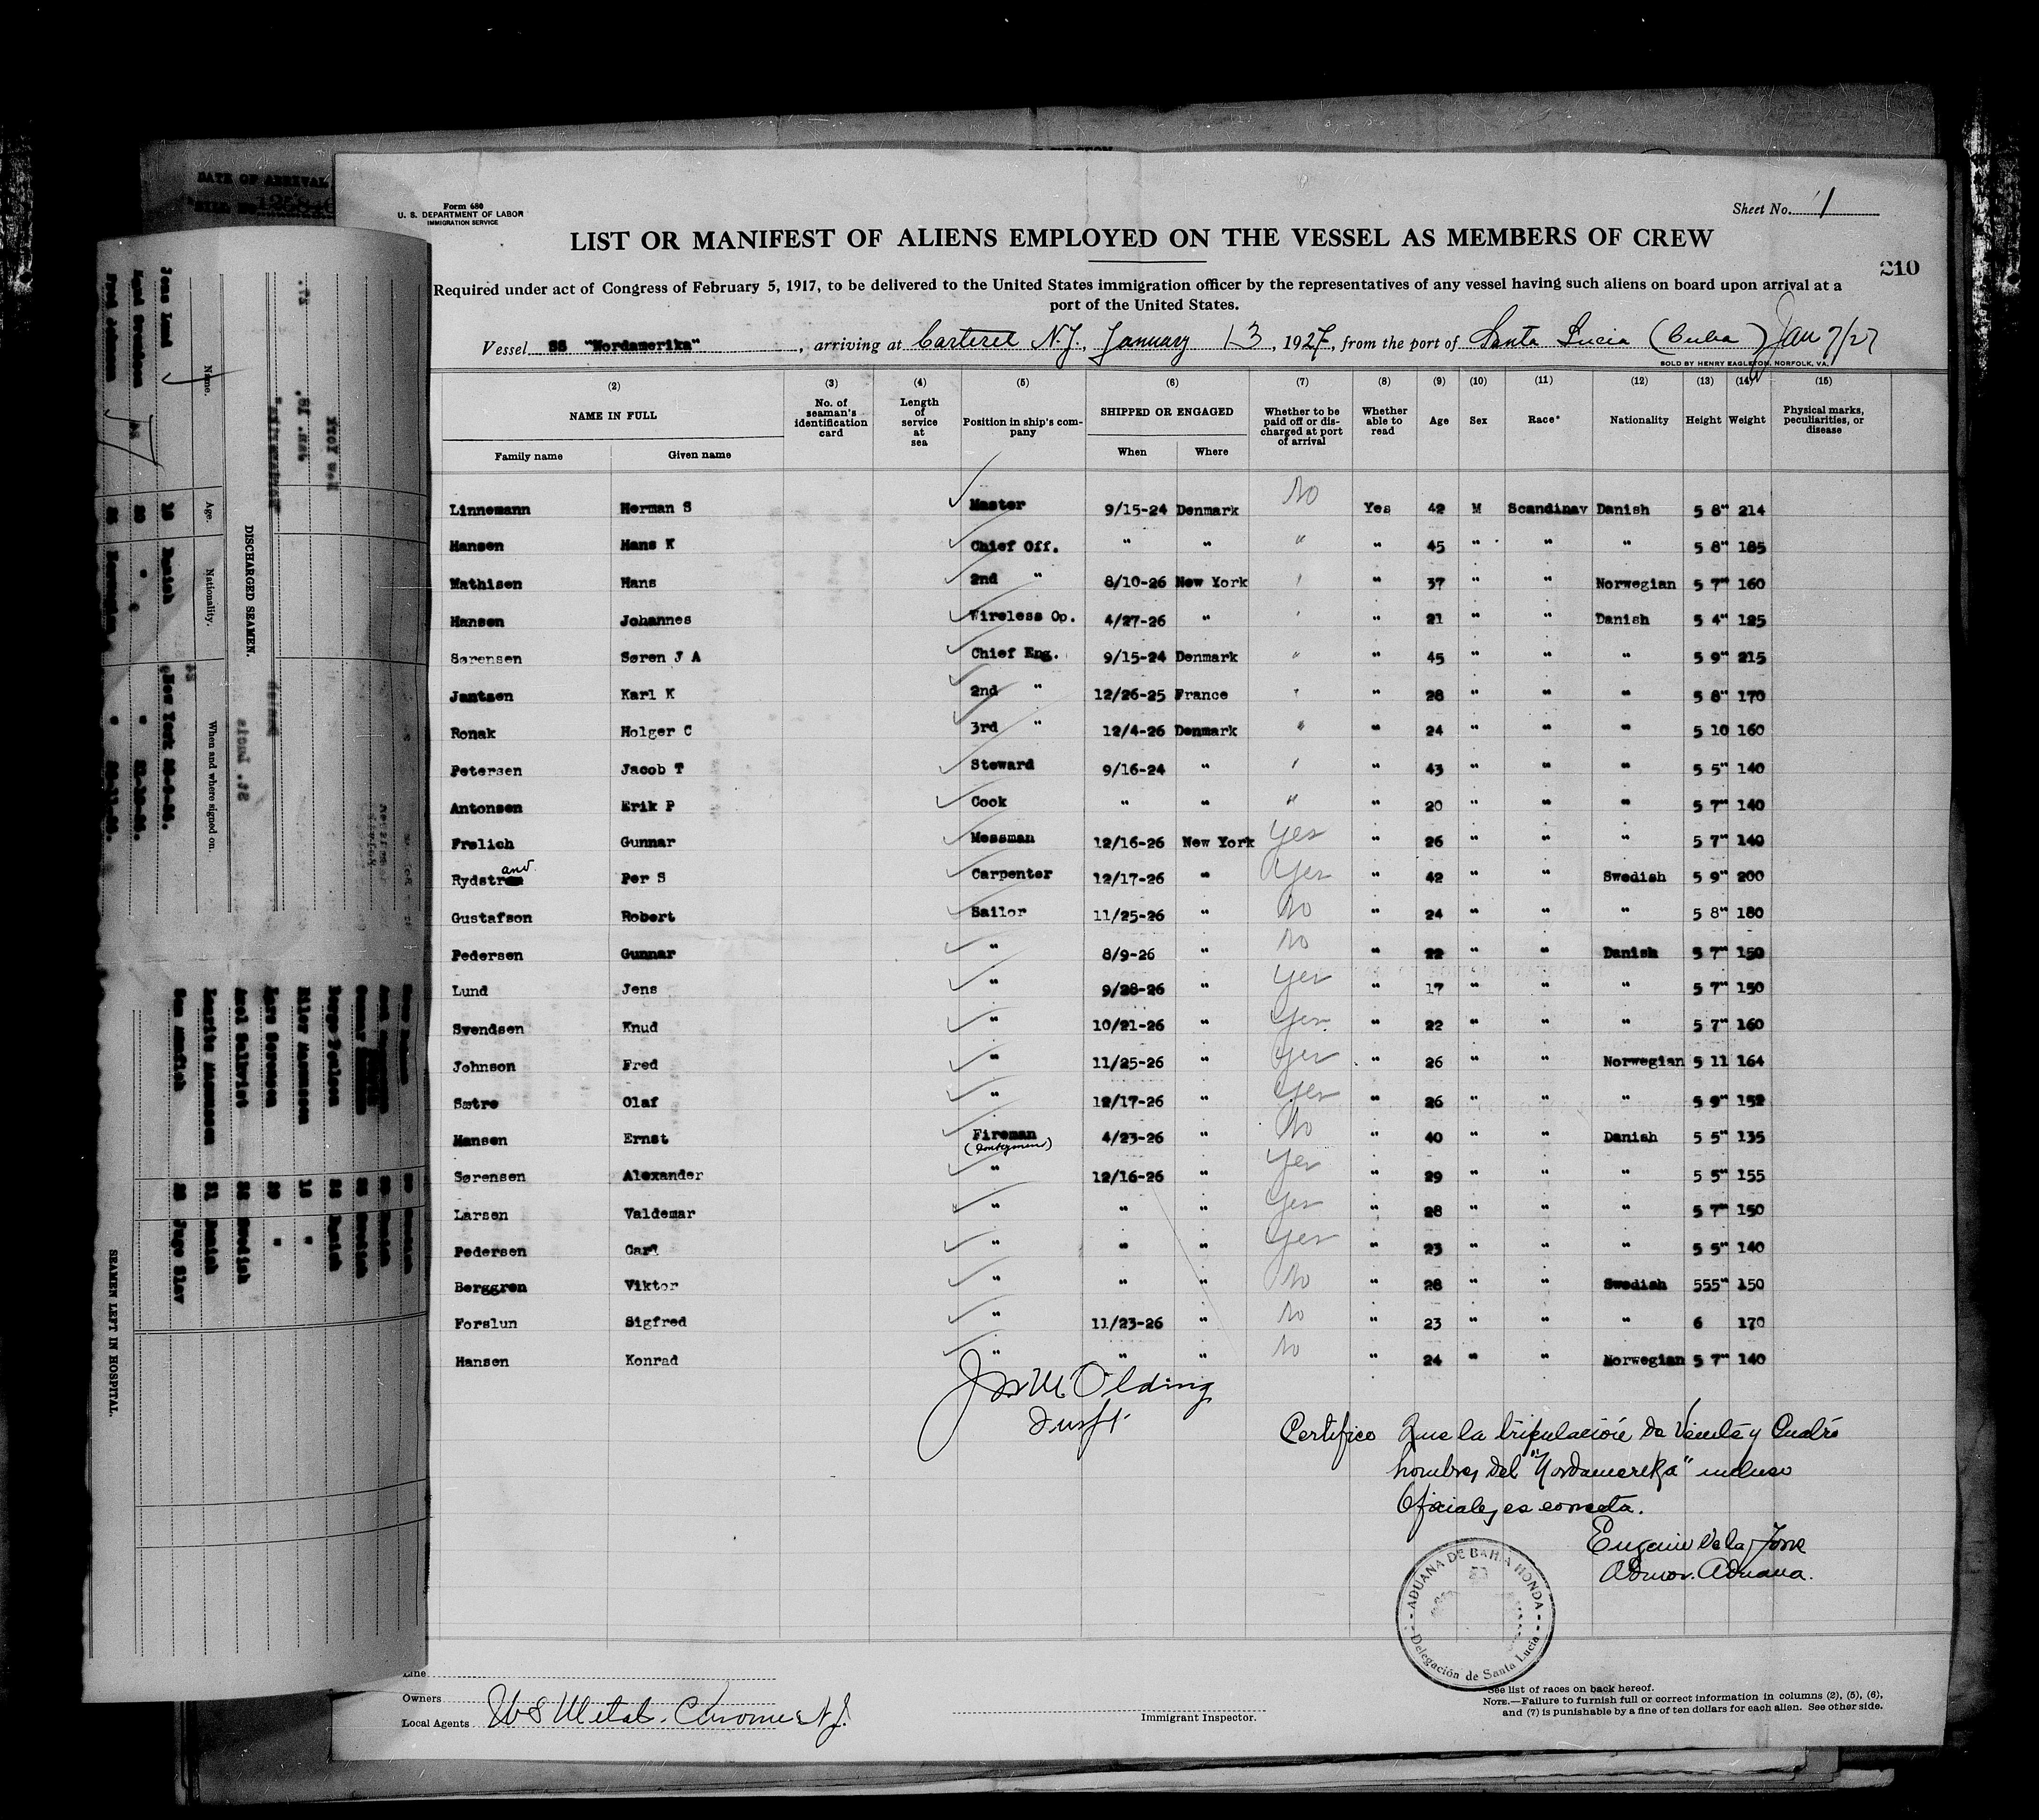 DATE OF ARRIVAL
Form 680
U. S. DEPARTMENT OF LABOR
IMMIGRATION SERVICE
Sheet No. 1
LIST OR MANIFEST OF ALIENS EMPLOYED ON THE VESSEL AS MEMBERS OF CREW
210
Required under act of Congress of February 5, 1917, to be delivered to the United States immigration officer by the representatives of any vessel having such aliens on board upon arrival at a
port of the United States.
Vessel SS "Nordamerika", arriving at Carteret N.J., January 13, 1927, from the port of Santa Lucia (Cuba) Jan 7/27
SOLD BY HENRY EAGLETON, NORFOLK, VA.
(2) (3) (4) (5) (6) (7) (8) (9) (10) (11) (12) (13) (14) (15)
NAME IN FULL No. of seaman's identification card Length of service at sea Position in ship's company SHIPPED OR ENGAGED Whether to be paid off or discharged at port of arrival Whether able to read Age Sex Race* Nationality Height Weight Physical marks, peculiarities, or disease
Family name Given name When Where
Linnemann Herman S Master 9/15-24 Denmark No Yes 42 M Scandinav Danish 5 8" 214
Hansen Hans K Chief Off. " " " " 45 " " " 5 8" 185
Mathisen Hans 2nd " 8/10-26 New York " " 37 " " Norwegian 5 7" 160
Hansen Johannes Wireless Op. 4/27-26 " " " 21 " " Danish 5 4" 125
Sørensen Søren J A Chief Eng. 9/15-24 Denmark " " 45 " " " 5 9" 215
Jantsen Karl K 2nd " 12/26-25 France " " 28 " " " 5 8" 170
Ronak Holger C 3rd " 12/4-26 Denmark " " 24 " " " 5 10 160
Petersen Jacob T Steward 9/16-24 " " " 43 " " " 5 5" 140
Antonsen Erik P Cook " " " " 20 " " " 5 7" 140
Frølich Gunnar Messman 12/16-26 New York Yes " 26 " " " 5 7" 140
Rydstrand Per S Carpenter 12/17-26 " Yes " 42 " " Swedish 5 9" 200
Gustafson Robert Sailor 11/25-26 " No " 24 " " " 5 8" 180
Pedersen Gunnar " 8/9-26 " No " 22 " " Danish 5 7" 150
Lund Jens " 9/28-26 " Yes " 17 " " " 5 7" 150
Svendsen Knud " 10/21-26 " Yes " 22 " " " 5 7" 160
Johnson Fred " 11/25-26 " Yes " 26 " " Norwegian 5 11 164
Sætre Olaf " 12/17-26 " Yes " 26 " " " 5 9" 152
Hansen Ernst Fireman 4/23-26 " No " 40 " " Danish 5 5" 135
Sørensen Alexander " 12/16-26 " Yes " 29 " " " 5 5" 155
Larsen Valdemar " " " Yes " 28 " " " 5 7" 150
Pedersen Carl " " " Yes " 23 " " " 5 5" 140
Berggren Viktor " " " No " 28 " " Swedish 555" 150
Forslun Sigfred " 11/23-26 " No " 23 " " " 6 170
Hansen Konrad " " " No " 24 " " Norwegian 5 7" 140
Jos M Olding
Certifico que la tripulación de Veinte y Cuatro
hombres del "Nordamerika" incluso
Oficiales es correcta.
Eugenio de la Torre
Admor. Aduana.
ADUANA DE BAHIA HONDA
Delegación de Santa Lucia
Line
Owners
Local Agents U S Metals. Chrome N.J.
Immigrant Inspector.
*See list of races on back hereof.
NOTE.—Failure to furnish full or correct information in columns (2), (5), (6),
and (7) is punishable by a fine of ten dollars for each alien. See other side.
DISCHARGED SEAMEN.
Name. Age. Nationality. When and where signed on.
Jens Lund
Fred Johnson
SEAMEN LEFT IN HOSPITAL.